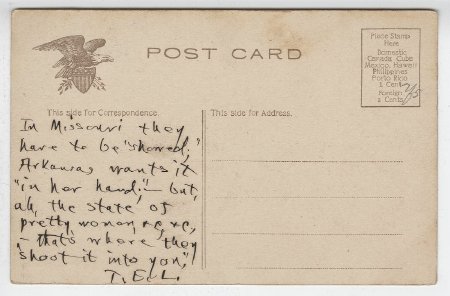 POST CARD
Place Stamp
Here
Domestic
Canada, Cuba
Mexico, Hawaii
Philippines
Porto Rico
1 Cent
Foreign
2 Cents
This side for Correspondence.
This side for Address.
In Missouri they
have to be "showed,"
Arkansas wants it
"in her hand;" but,
ah, the state of
pretty women, &c, &c,
– that's where "they
shoot it into you,"
T.E.L.